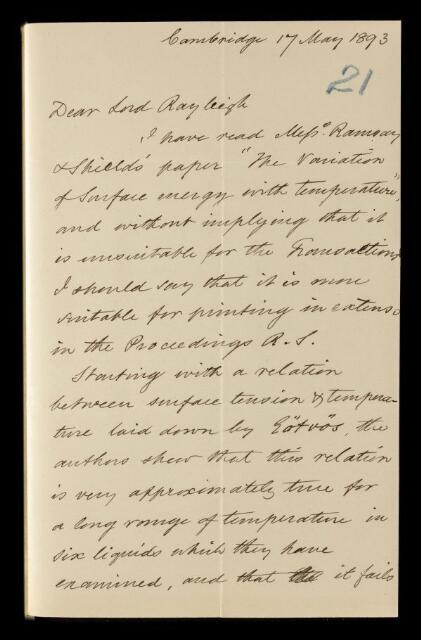 Cambridge 17 May 1893
21
Dear Lord Rayleigh
I have read Messrs. Ramsay
& Shield's paper "The Variation
of Surface energy with temperature",
and without implying that it
is unsuitable for the Transactions
I should say that it is more
suitable for printing in extenso
in the Proceedings R. S.
Starting with a relation
between surface tension & tempera-
ture laid down by Eötvös, the
authors shew that this relation
is very approximately true for
a long range of temperature in
six liquids which they have
examined, and that it fails